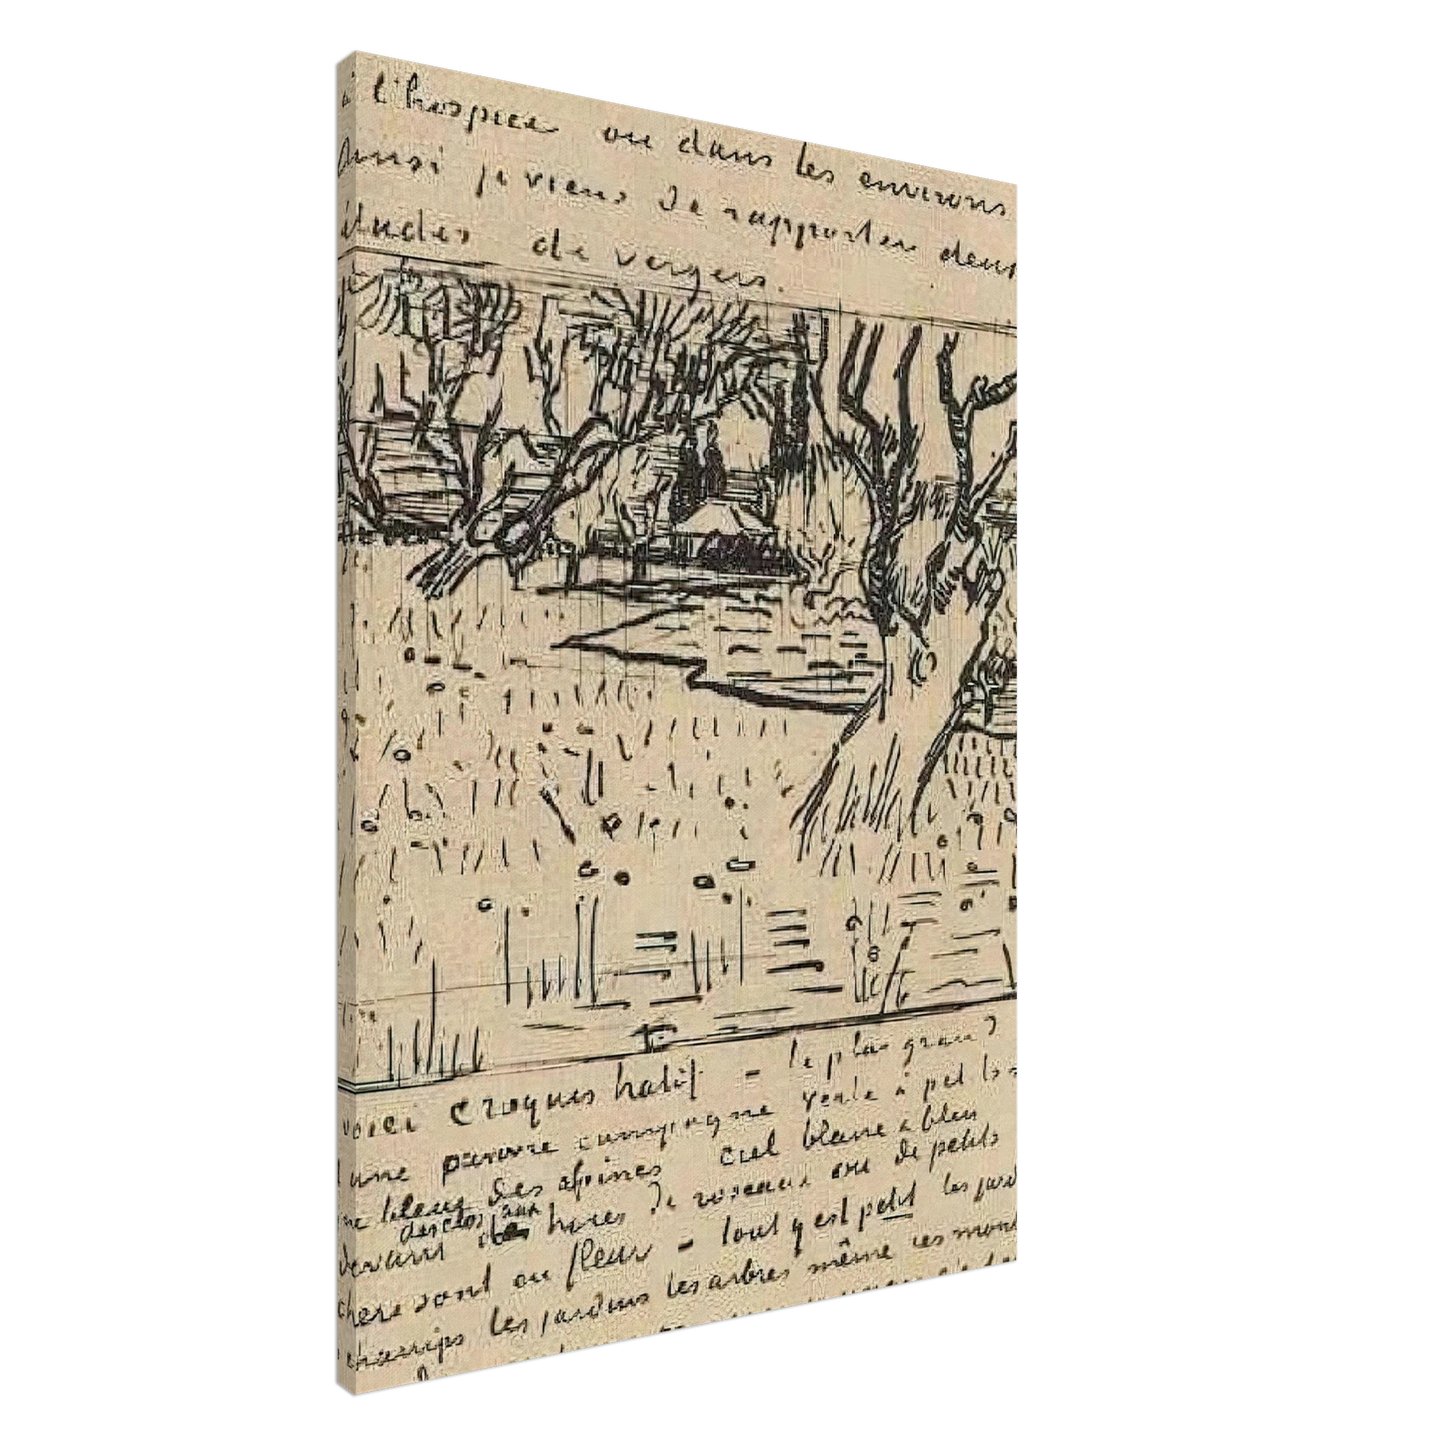 à l'hospice ou dans les environs
Ainsi je viens de rapporter deux
études de vergers.
voici croquis hatif – le plus grand
une pauvre campagne verte à petits
bleus des alpines ciel blanc & bleu
des clos aux
devant haies de roseaux ou de petits
sont en fleur – tout y est petit les jard
champs les jardins les arbres même ces mont